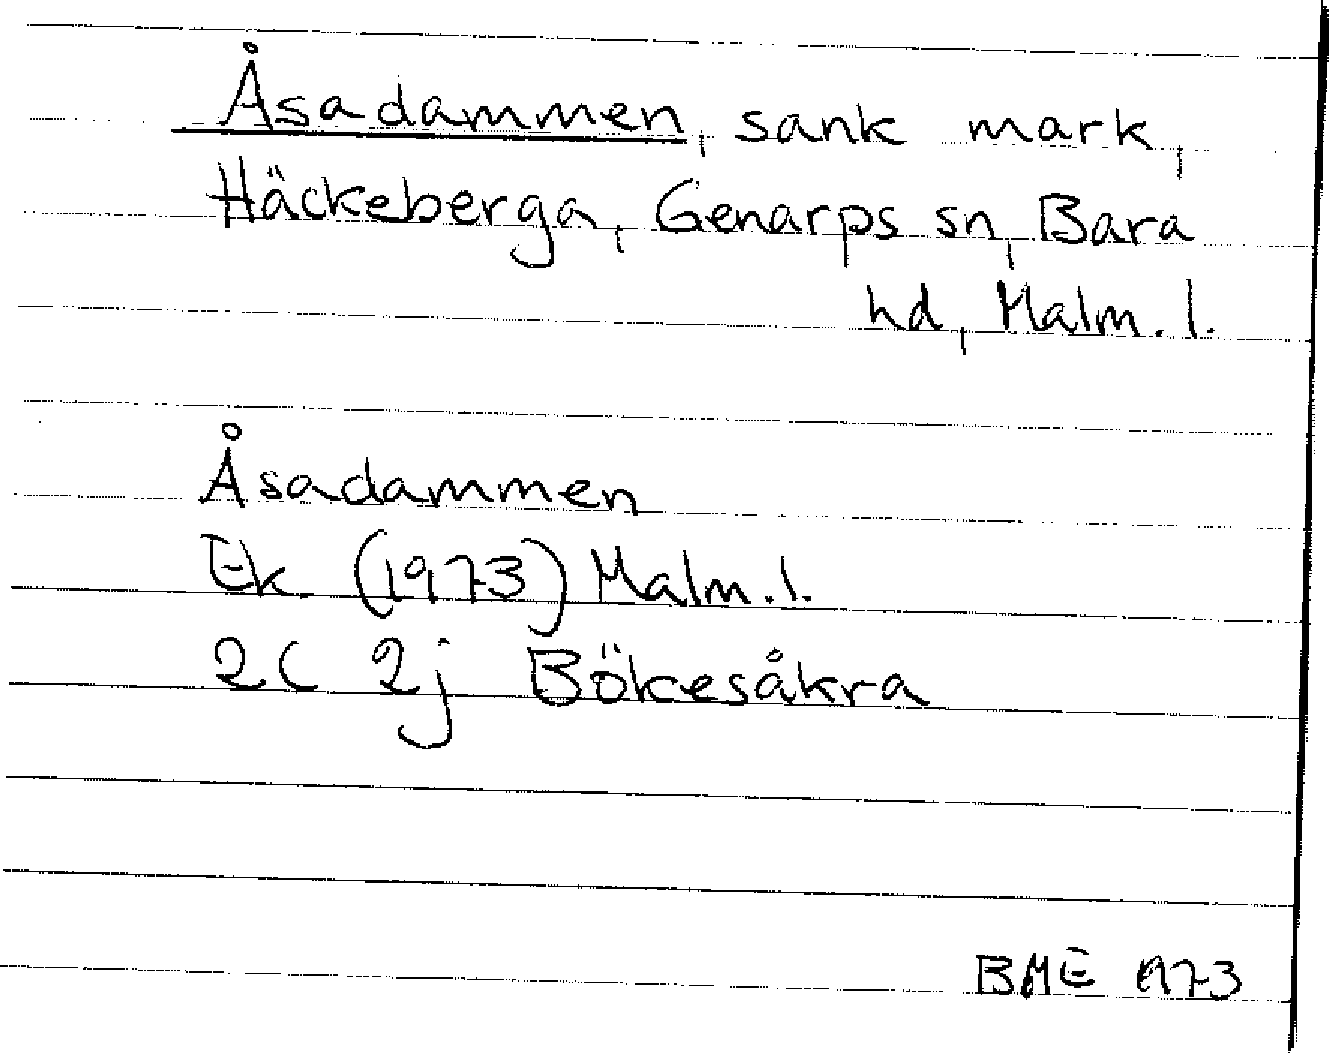 Åsadammen, sank mark,
Häckeberga, Genarps sn, Bara
hd, Malm. l.
Åsadammen
Ek. (1973) Malm. l.
2C 2j Bökesåkra
BME 1973